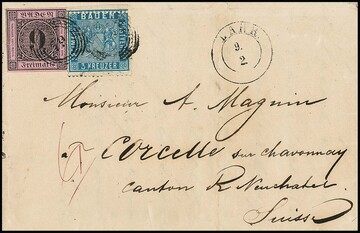 BADEN
9
Freimarke
BADEN
3 KREUZER
LAHR
9.
2.
Monsieur A. Magnin
à Corcelle sur chavonnay
canton D. Neuchatel
Suisse